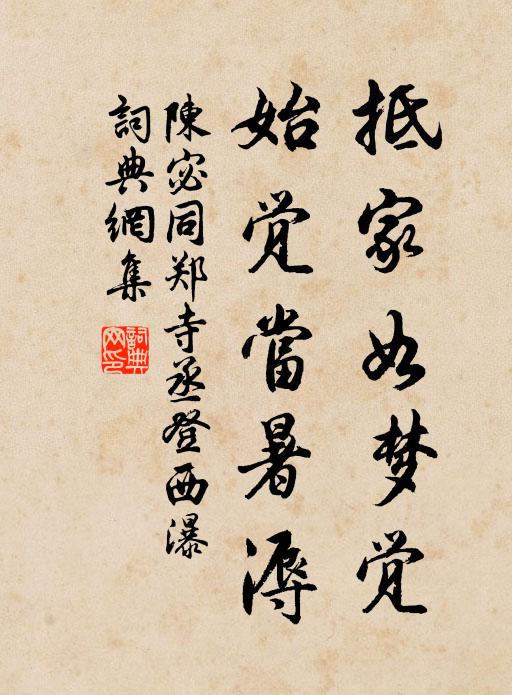 抵家如梦觉
始觉當暑溽
陳宓同郑寺丞登西瀑
詞典網集
詞典
网印